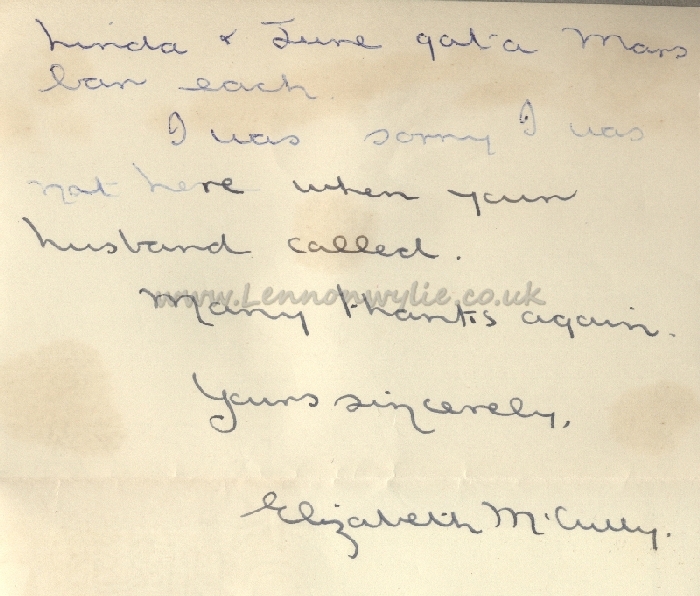 Linda & June got a Mars
bar each
I was sorry I was
not here when your
husband called.
www.Lennonwylie.co.uk
Many thanks again.
Yours sincerely,
Elizabeth McCully.